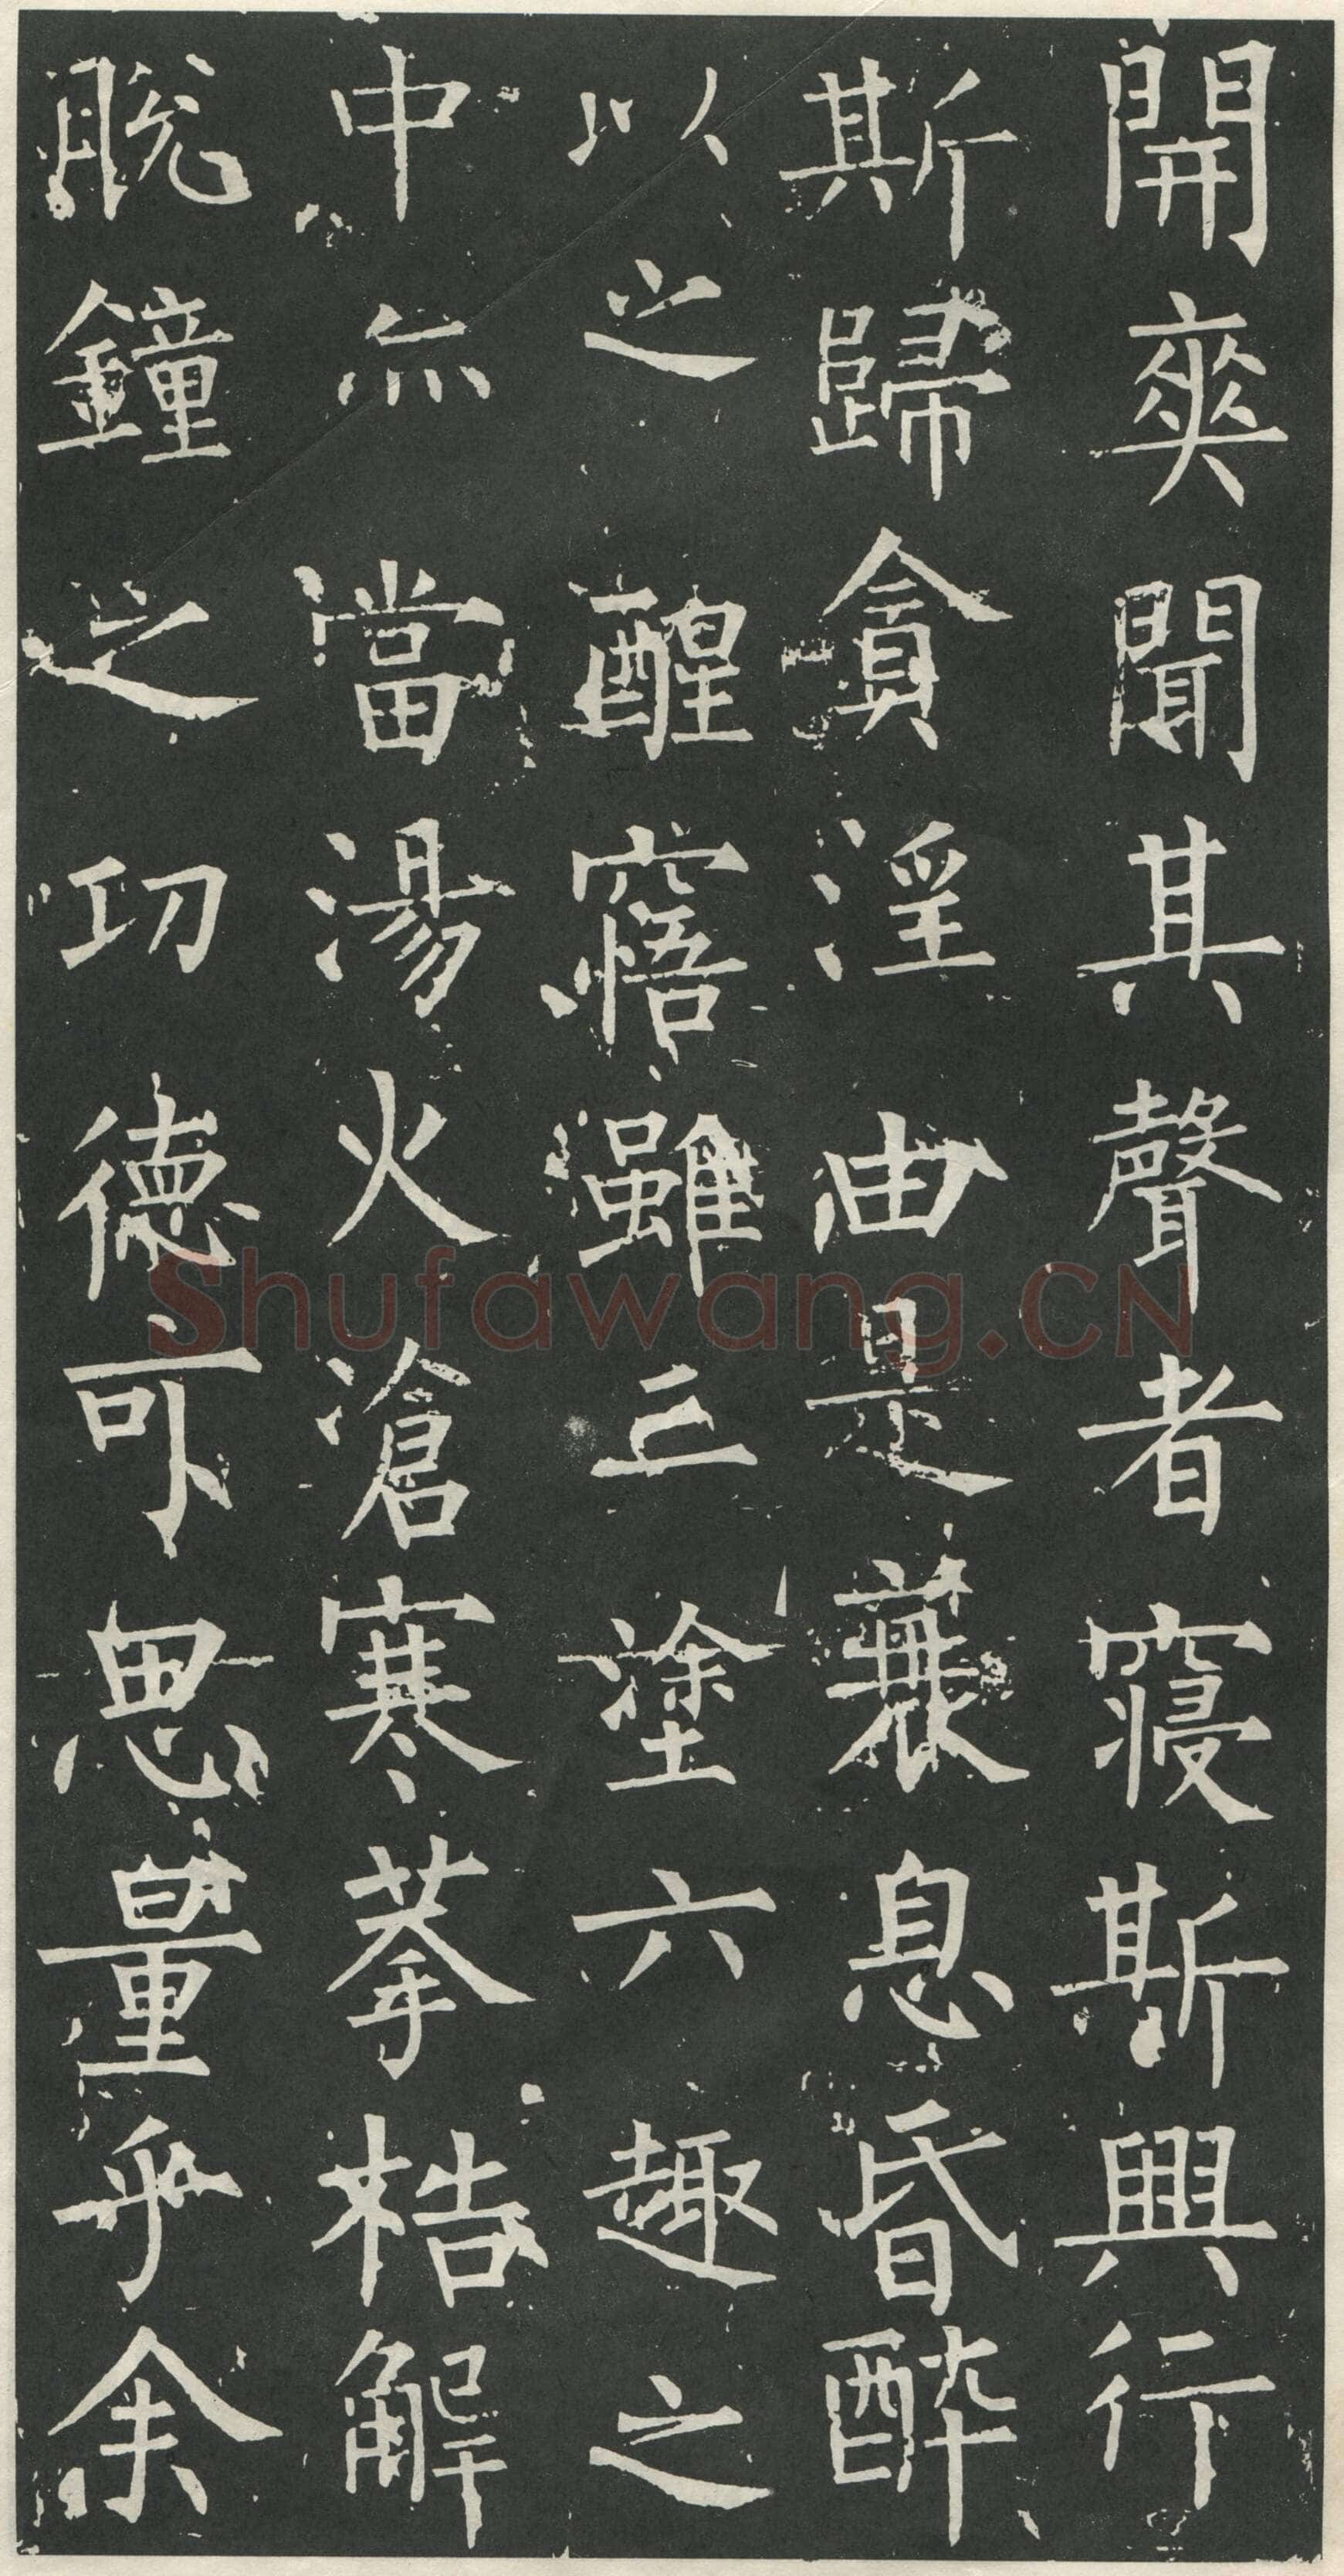 開爽聞其聲者寢斯興行
斯歸貪淫由是衰息昏醉
以之醒寤雖三塗六趣之
中亦當湯火滄寒拲梏解
脫鐘之功德可思量乎余
Shufawang.CN